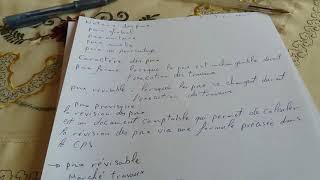 Nature des prix
prix global
prix unitaire
prix mixte
prix au
Caractère des prix
prix ferme lorsque le prix est inchangeable durant
l'exécution des travaux
prix révisable : lorsque le prix se changent durant
l'exécution des travaux
prix provisoire
la révision des prix
est un document comptable qui permet de calculer
la révision de prix via une formule précisée dans
le CPS
→ prix révisable
Marché travaux